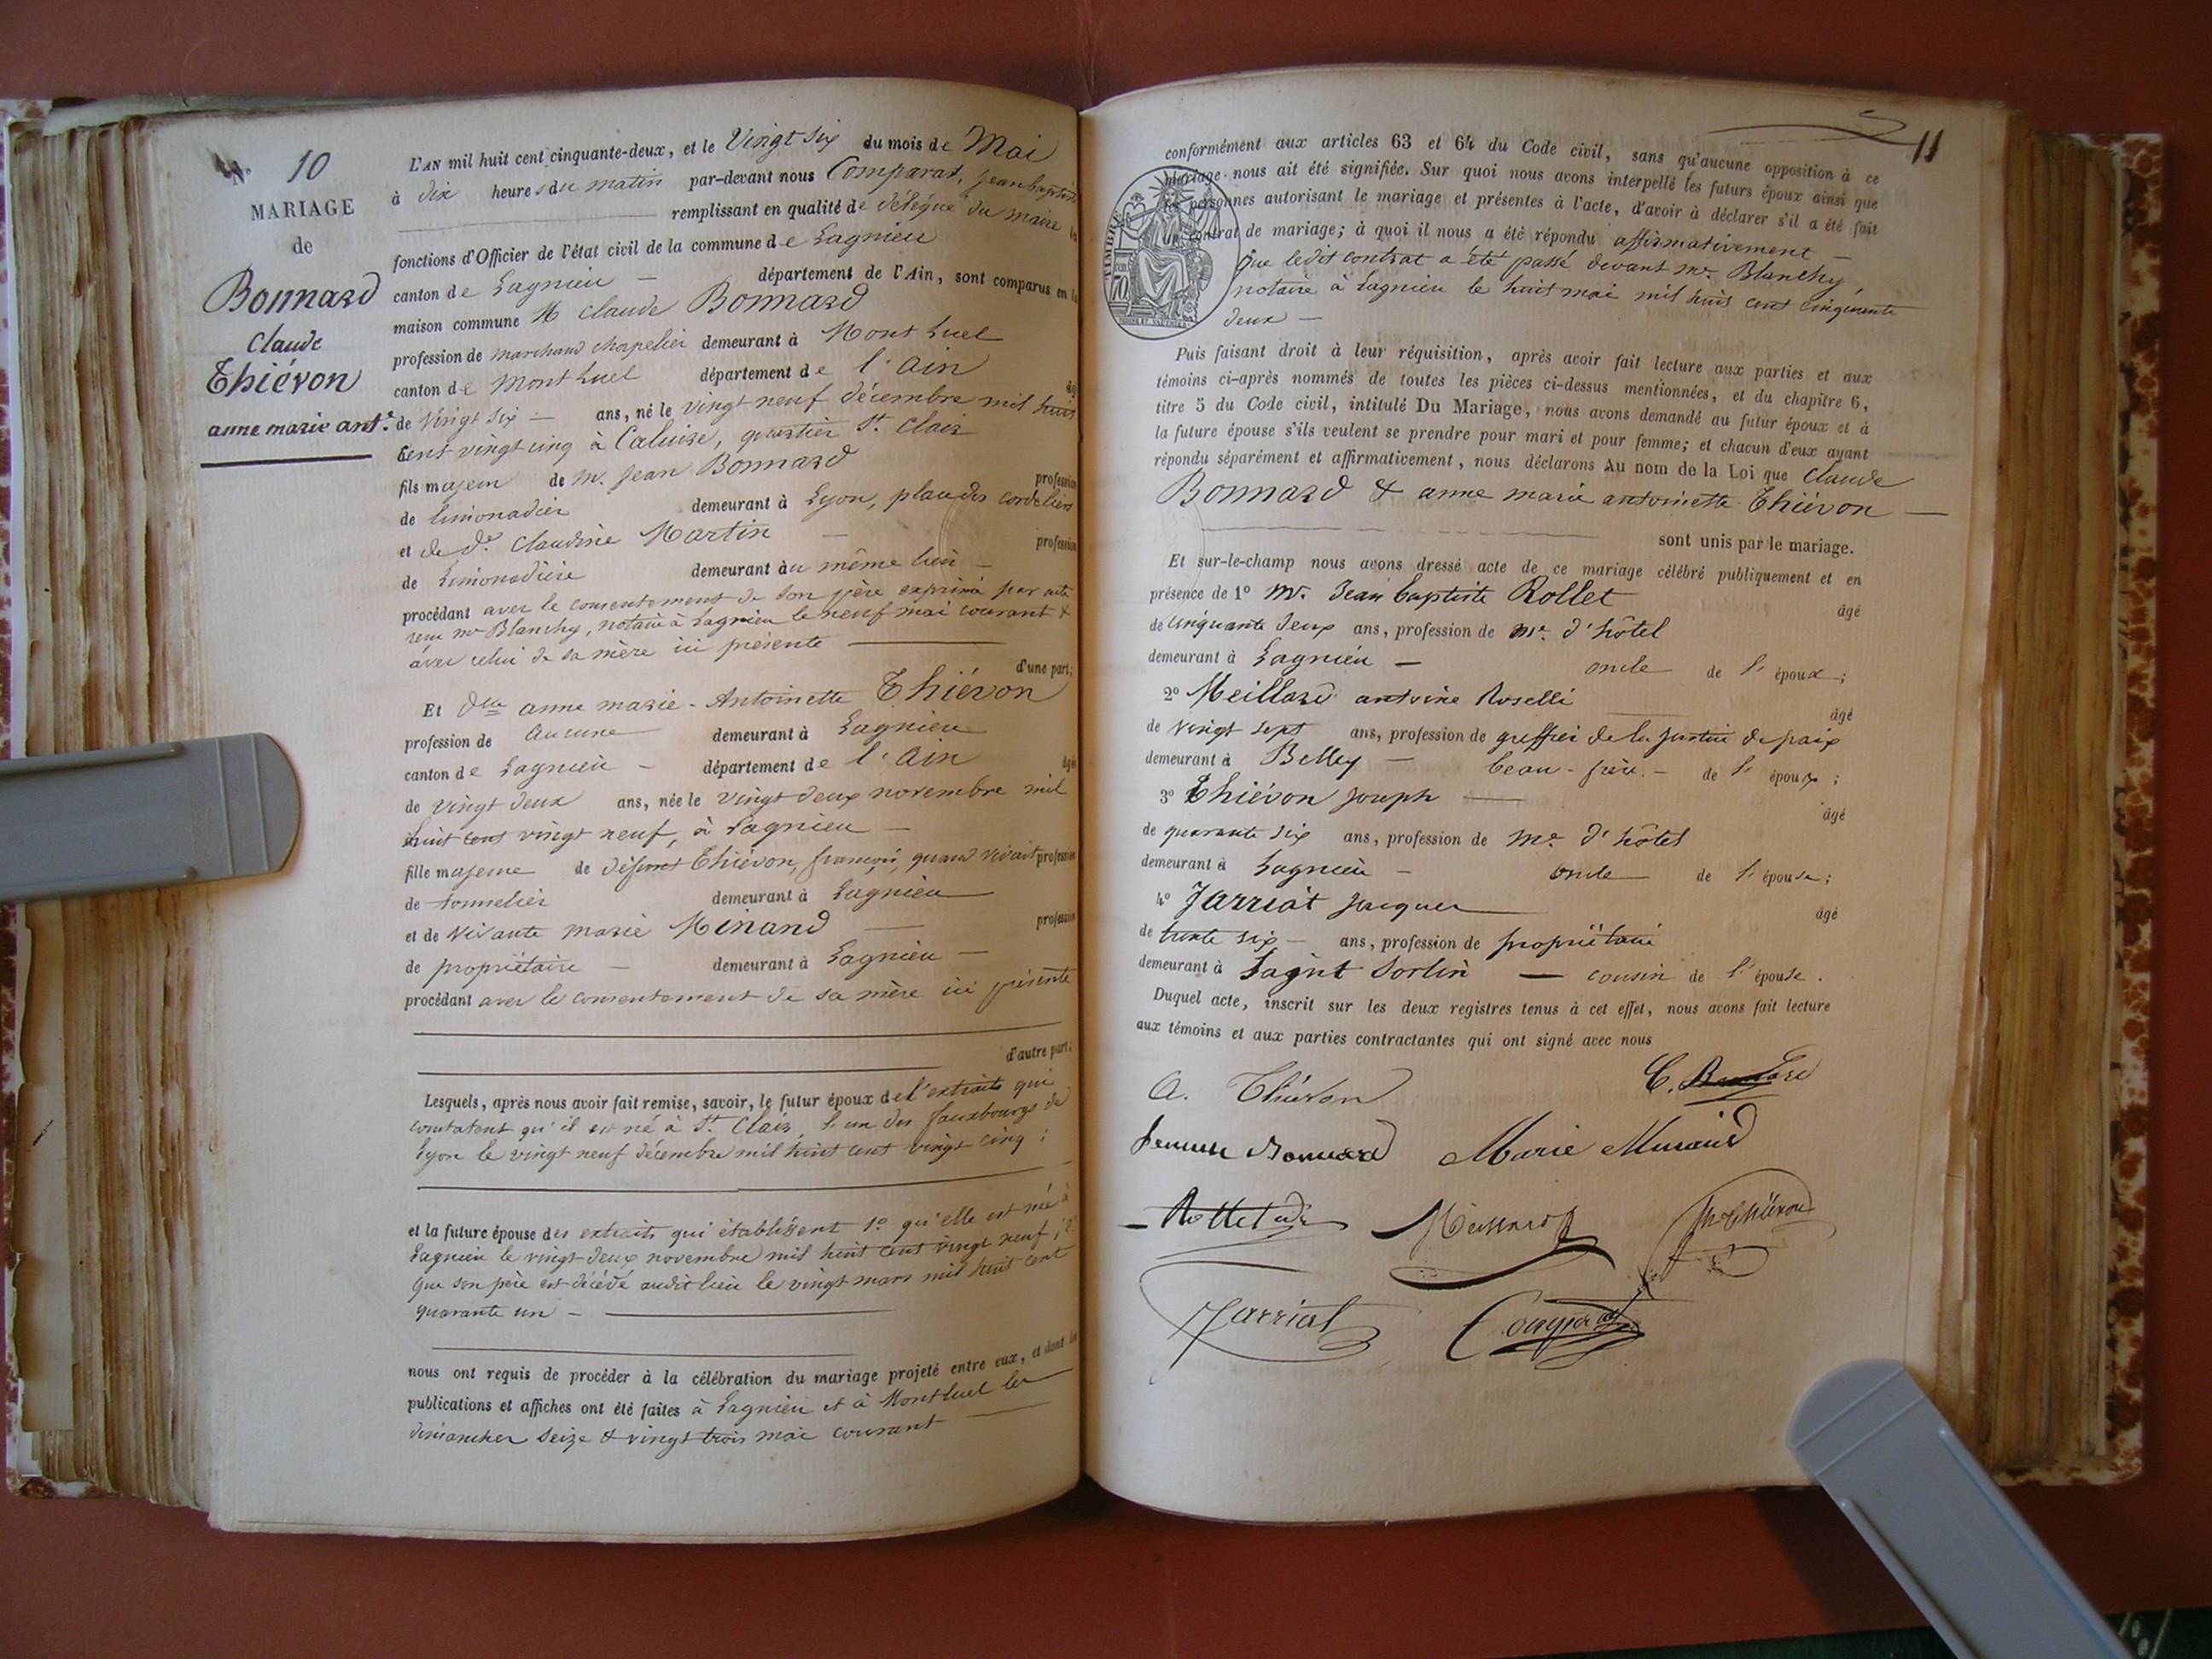 N.° 10
MARIAGE
de
Bonnard
Claude
Thiévon
anne marie ant.e
L'AN mil huit cent cinquante-deux, et le Vingt six du mois de Mai
à dix heures du matin par-devant nous Comparat, jean baptiste
remplissant en qualité de délégué du maire les
fonctions d'Officier de l'état civil de la commune de Lagnieu
canton de Lagnieu — département de l'Ain, sont comparus en la
maison commune M Claude Bonnard
profession de marchand chapelier demeurant à Montluel
canton de Montluel département de l'ain âgé
de Vingt six — ans, né le vingt neuf décembre mil huit
cent vingt cinq à Caluire, quartier St. Clair
fils majeur de M. Jean Bonnard profession
de limonadier demeurant à Lyon, place des cordeliers
et de de. Claudine Martin — profession
de Limonadière demeurant au même lieu —
procédant avec le consentement de son père exprimé par acte
reçu me Blanchy, notaire à Lagnieu le neuf mai courant &
avec celui de sa mère ici présente
d'une part;
Et dlle anne marie - Antoinette Thiévon
profession de Aucune demeurant à Lagnieu
canton de Lagnieu — département de l'ain âgée
de vingt deux ans, née le vingt deux novembre mil
huit cent vingt neuf, à Lagnieu —
fille majeure de défunt Thiévon, françois, quand vivait profession
de tonnelier demeurant à Lagnieu
et de vivante marie Minand profession
de propriétaire — demeurant à Lagnieu —
procédant avec le consentement de sa mère ici présente
d'autre part;
Lesquels, après nous avoir fait remise, savoir, le futur époux de l'extrait qui
constatent qu'il est né à St. Clair, l'un des fauxbourgs de
Lyon le vingt neuf décembre mil huit cent vingt cinq ;
et la future épouse des extraits qui établissent 1.° qu'elle est née à
Lagnieu le vingt-deux novembre mil huit cent vingt neuf ; 2.°
que son père est décédé audit lieu le vingt mars mil huit cent
quarante un —
nous ont requis de procéder à la célébration du mariage projeté entre eux, et dont les
publications et affiches ont été faites à Lagnieu et à Montluel les
dimanches seize & vingt trois mai courant
11
conformément aux articles 63 et 64 du Code civil, sans qu'aucune opposition à ce
mariage nous ait été signifiée. Sur quoi nous avons interpellé les futurs époux ainsi que
les personnes autorisant le mariage et présentes à l'acte, d'avoir à déclarer s'il a été fait
un contrat de mariage; à quoi il nous a été répondu affirmativement —
que ledit contrat a été passé devant me. Blanchy,
notaire à Lagnieu le huit mai mil huit cent cinquante
deux —
TIMBRE
70
Puis faisant droit à leur réquisition, après avoir fait lecture aux parties et aux
témoins ci-après nommés de toutes les pièces ci-dessus mentionnées, et du chapitre 6,
titre 5 du Code civil, intitulé Du Mariage, nous avons demandé au futur époux et à
la future épouse s'ils veulent se prendre pour mari et pour femme; et chacun d'eux ayant
répondu séparément et affirmativement, nous déclarons Au nom de la Loi que Claude
Bonnard & anne marie antoinette Thiévon —
sont unis par le mariage.
Et sur-le-champ nous avons dressé acte de ce mariage célébré publiquement et en
présence de 1° Mr. Jean baptiste Rollet âgé
de cinquante deux ans, profession de me. d'hôtel
demeurant à Lagnieu — oncle de l'époux ;
2° Meillard antoine Roselli âgé
de vingt sept ans, profession de greffier de la justice de paix
demeurant à Belley — beau-frère — de l'époux ;
3° Thiévon joseph — âgé
de quarante six ans, profession de Me. d'hôtel
demeurant à Lagnieu — oncle de l'épouse ;
4° Jarriat jacques âgé
de trente six — ans, profession de propriétaire
demeurant à Saint Sorlin — cousin de l'épouse.
Duquel acte, inscrit sur les deux registres tenus à cet effet, nous avons fait lecture
aux témoins et aux parties contractantes qui ont signé avec nous
A. Thiévon C. Bonnard
femme Bonnard Marie Minand
Rollet Meillard Jh Thiévon
Jarriat Comparat